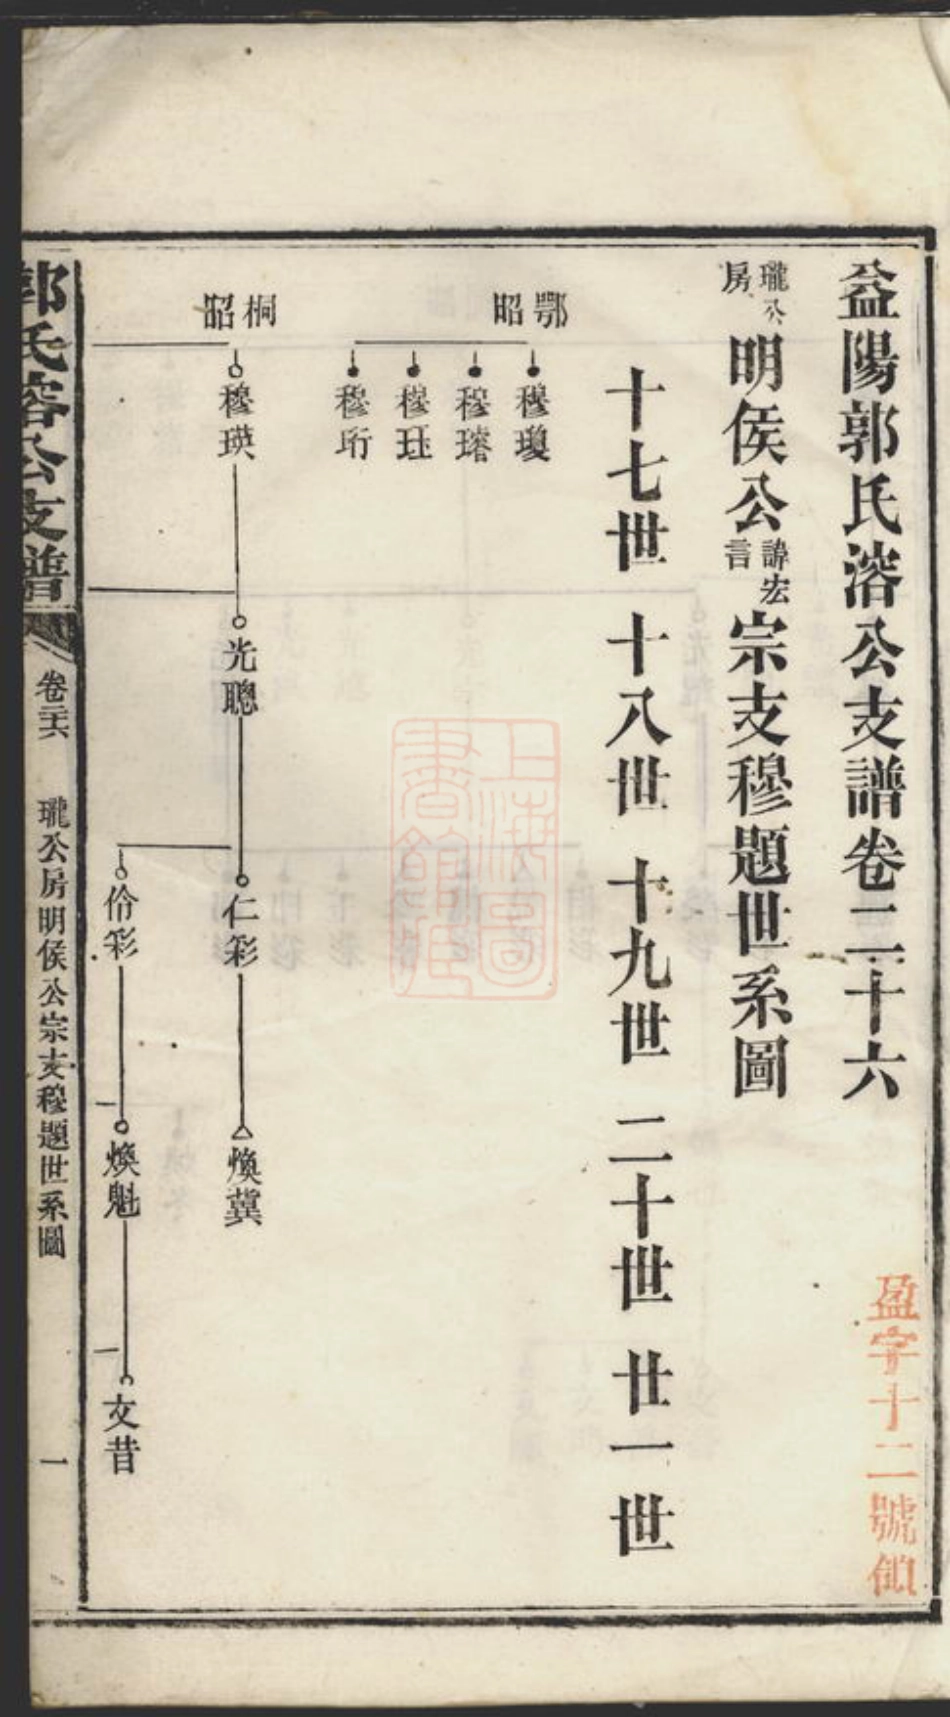 益陽郭氏溶公支譜卷二十六
盈字十二號
瓏公房明侯公諱宏言宗支穆題世系圖
十七世 十八世 十九世 二十世 廿一世
鄂昭
穆瓊
穆璿
穆珏
穆珩
桐昭
穆瑛
光聰
仁彩
煥冀
伶彩
煥魁
文昔
郭氏溶公支譜
卷二十六
瓏公房明侯公宗支穆題世系圖
一
上海圖書館藏